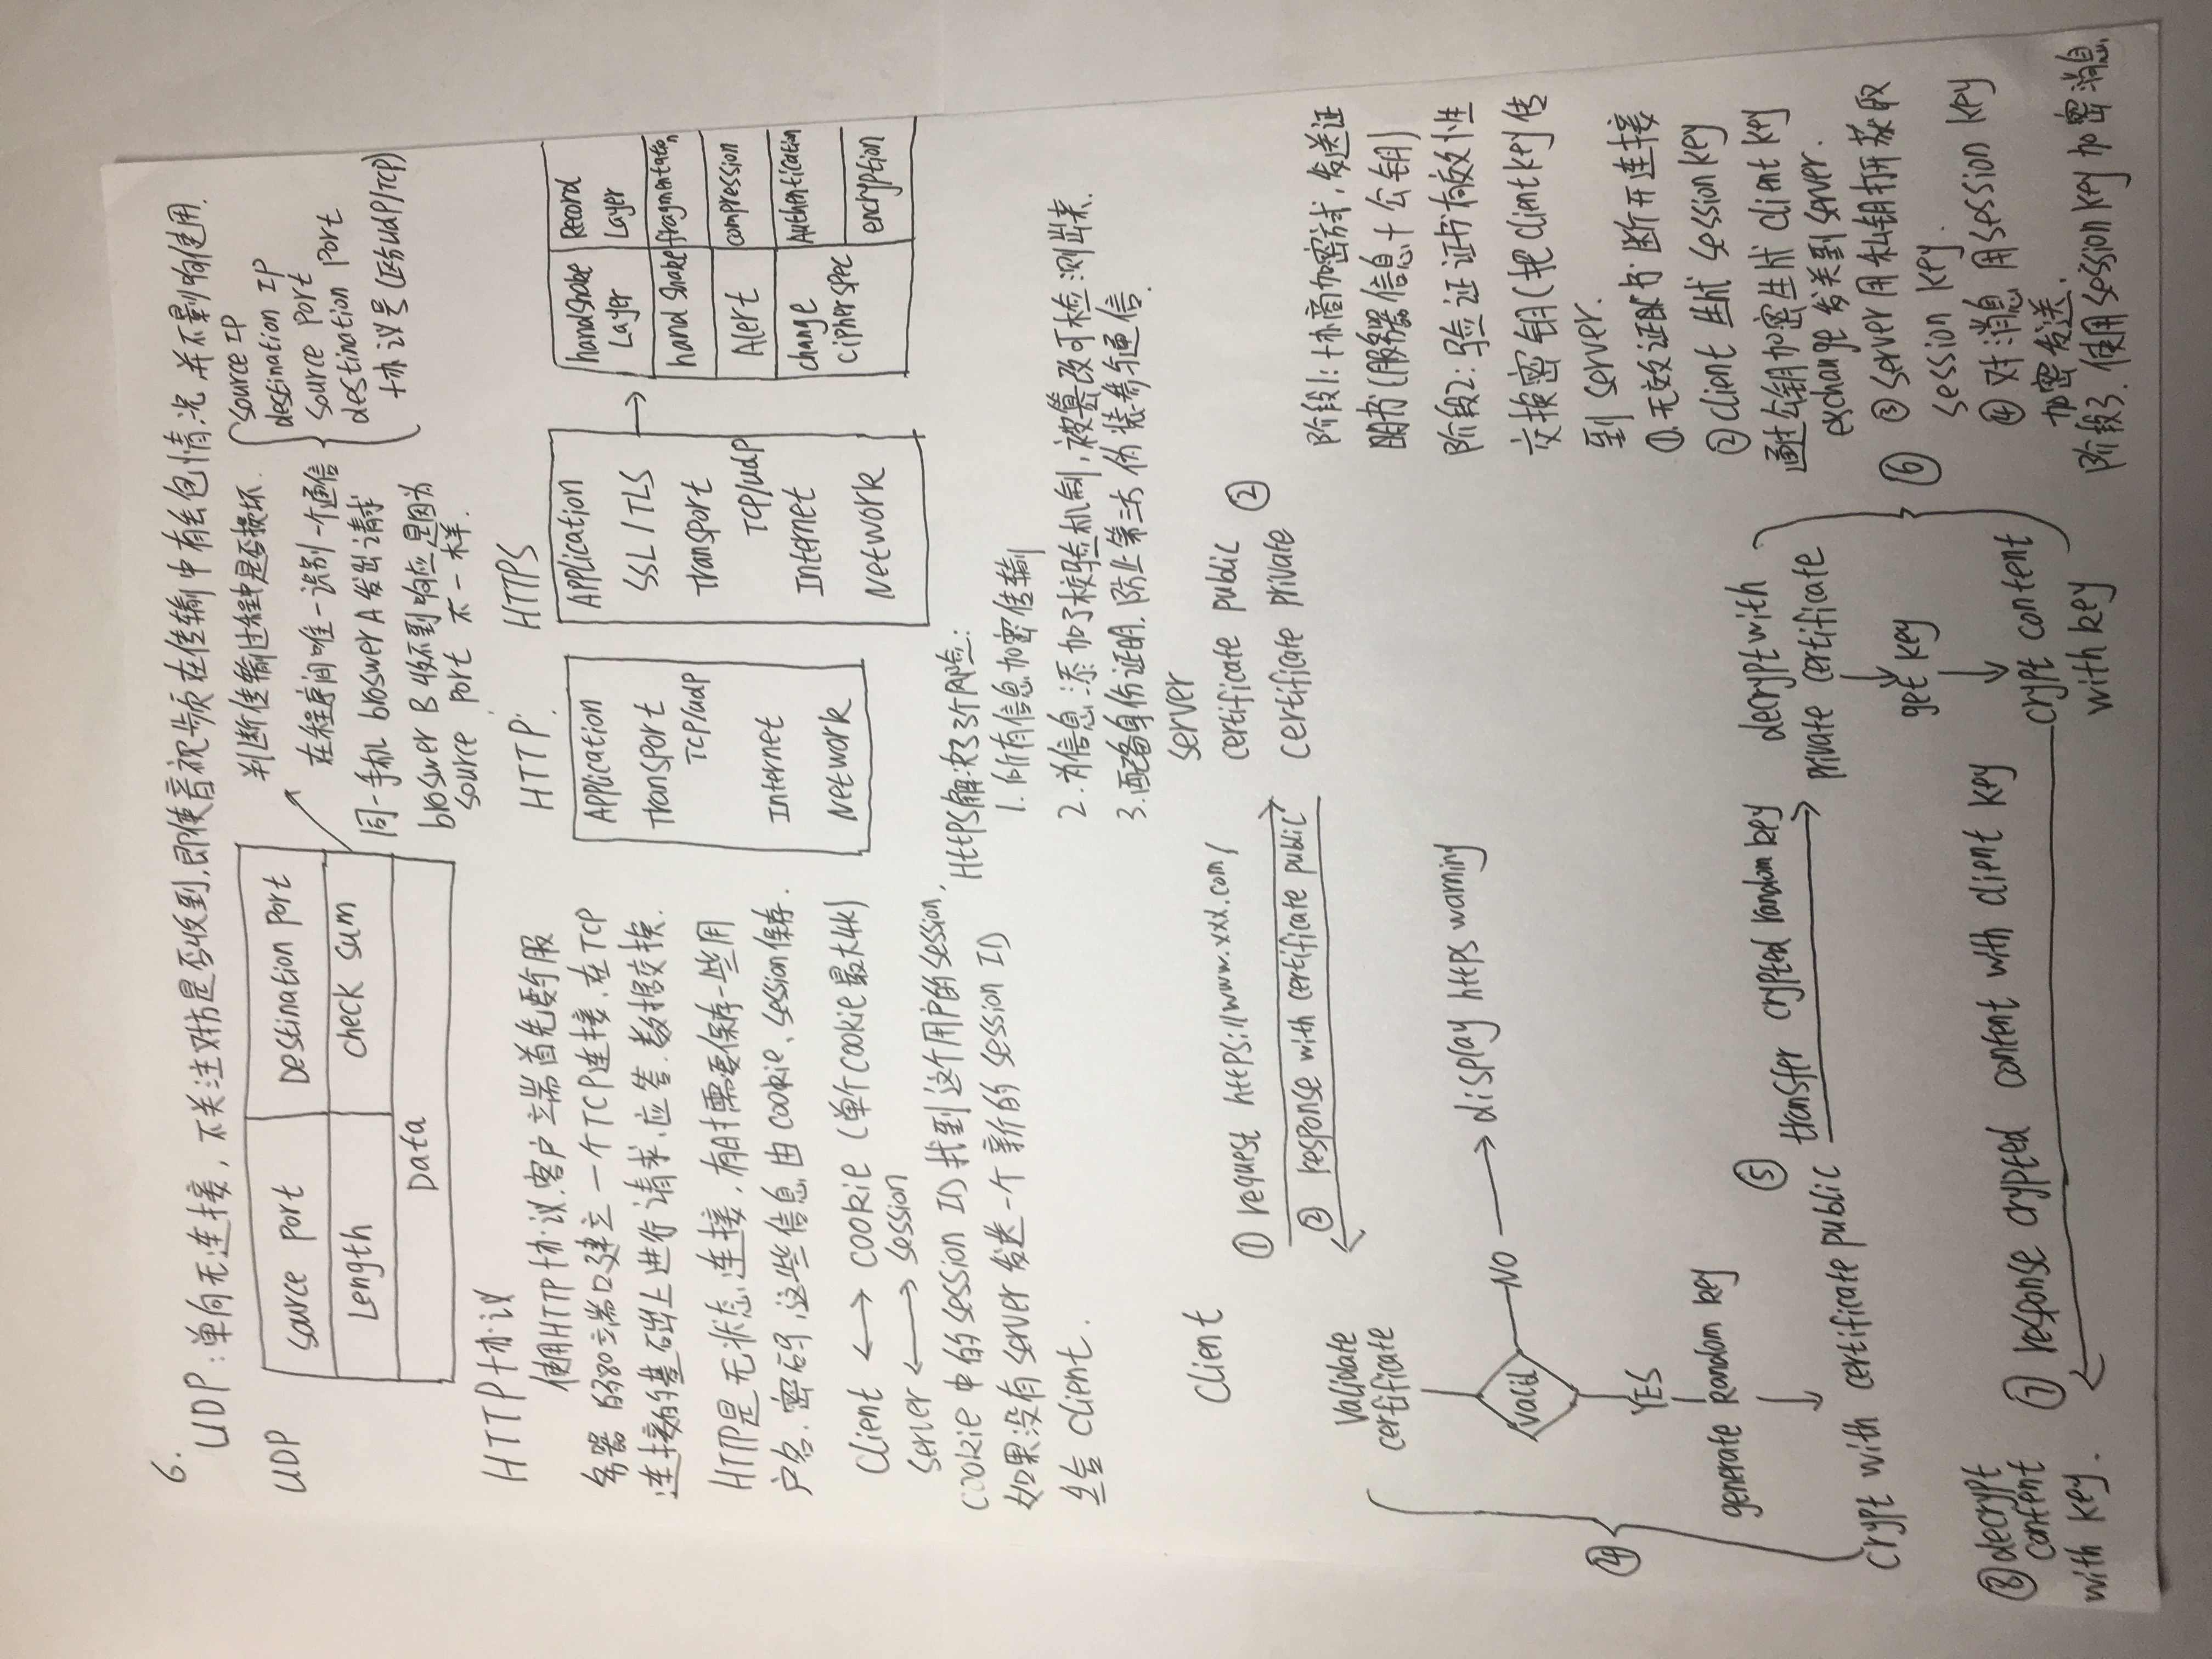 6.
UDP:单向无连接,不关注对方是否收到,即使音视频在传输中有丢包情况,并不影响使用.
UDP
source port
Destination port
Length
check sum
Data
判断传输过程中是否损坏.
在程序间唯一识别一个通信
source IP
destination IP
source port
destination port
+协议号(区分udp/TCP)
同一手机 broswer A 发出请求
broswer B 收不到响应是因为
source port 不一样.
HTTP协议
使用HTTP协议.客户端首先要与服
务器的80端口建立一个TCP连接.在TCP
连接的基础上进行请求.应答.数据交换.
HTTP是无状态连接,有时需要保存一些用
户名.密码,这些信息由cookie、session保存.
client ⟷ cookie (单个cookie最大4k)
server ⟷ session
cookie中的session ID找到这个用户的session.
如果没有server发送一个新的session ID
给client.
HTTP:
Application
Transport
TCP/udp
Internet
Network
HTTPS
Application
SSL/TLS
Transport
TCP/udp
Internet
Network
handshake
Layer
Record
Layer
hand shake
fragmentation
Alert
compression
change
cipher spec
Authentication
encryption
HttPS解决了3个风险:
1.所有信息加密传输
2.为信息添加了校验机制,被篡改可检测出来.
3.配备身份证明.防止第三方伪装参与通信.
Client
server
① request https://www.xxx.com/
certificate public
certificate private
②
② response with certificate public
validate
certificate
valid
NO
display https warning
YES
generate Random key
crypt with certificate public
④
⑤
transfer crypted random key
decrypt with
private certificate
get key
crypt content
with key
⑥
⑦ response crypted content with client key
⑧ decrypt
content
with key.
阶段1:协商加密方式,发送证
明书(服务器信息+公钥)
阶段2:验证证书有效性
交换密钥(把client key传
到server.
①.无效证书断开连接
②client 生成 session key
通过公钥加密生成 client key
exchange 发送到server.
③server用私钥打开获取
session key.
④对消息用session key
加密发送.
阶段3.使用session key加密消息